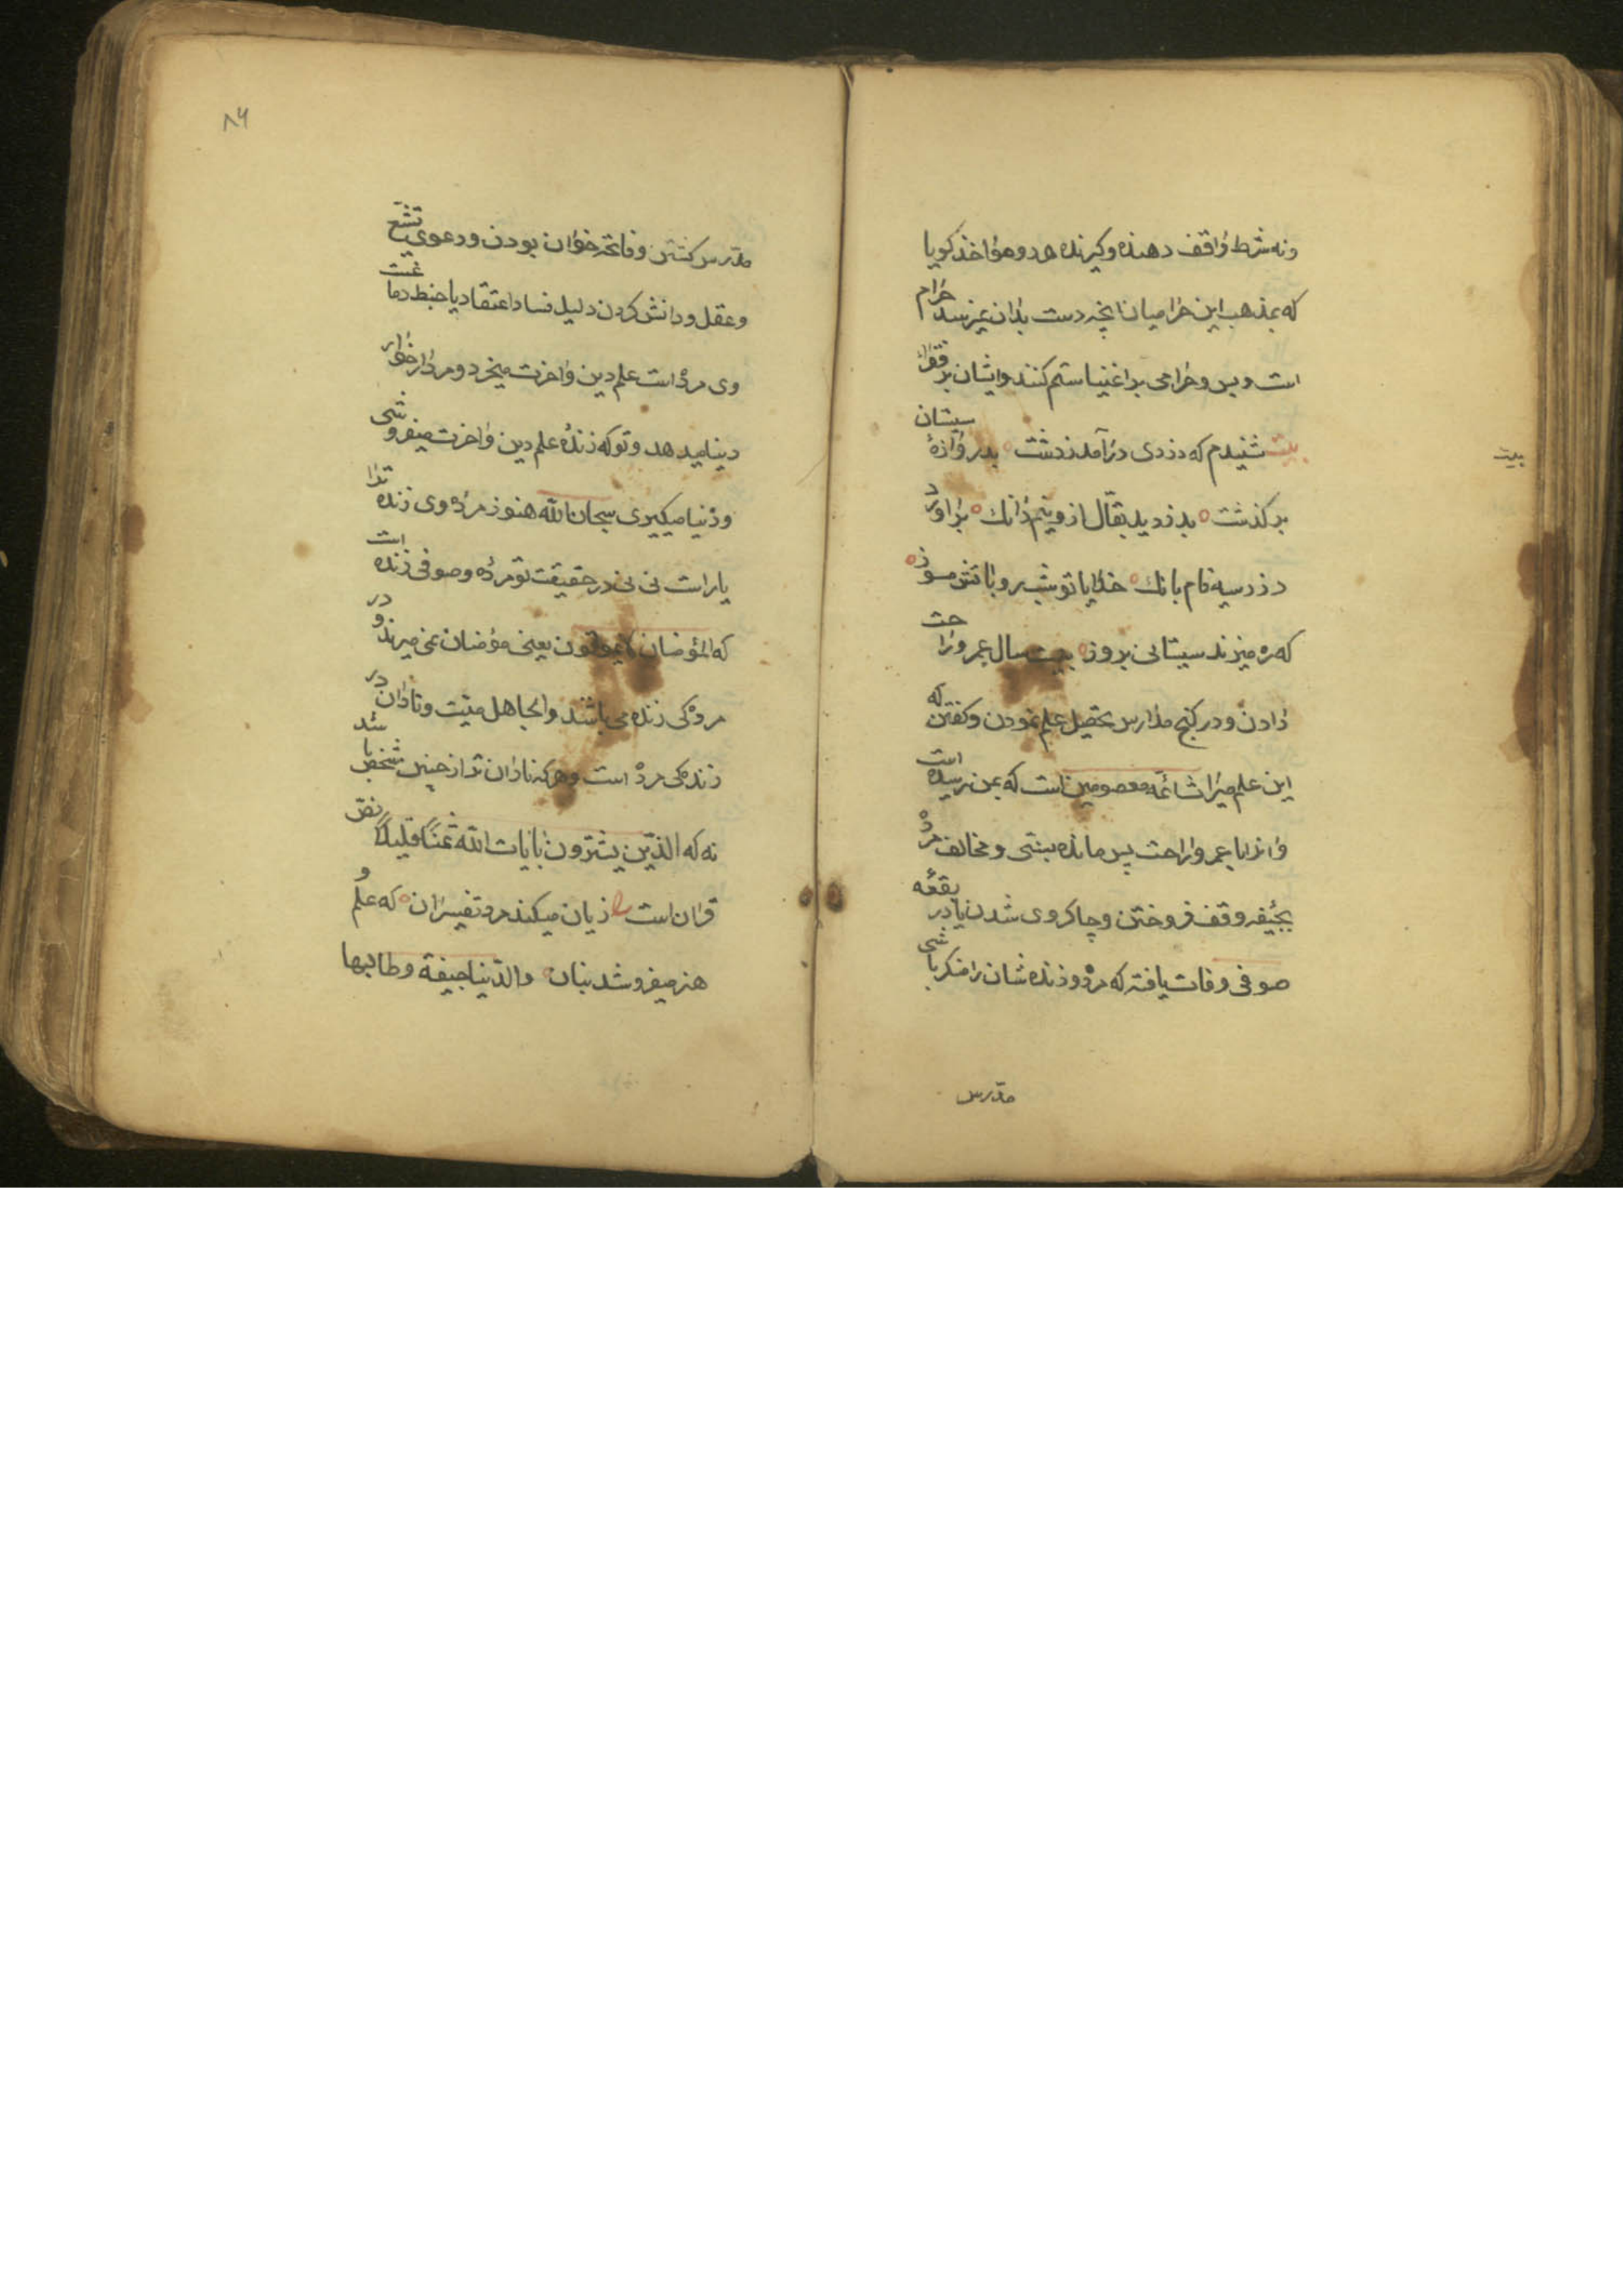 ونه شرط واقف دهنده وکیرنده هردو مؤاخذ کویا
که بمذهب این حرامیان انچه دست بدان نمیرسد حرام
است وبس وحرامی بر اغنیا ستم کنند وایشان بر فقرا
بیت شنیدم که دزدی درآمد زدشت بدروازهٔ سیستان
بیت
برکذشت بدزدید بقال ازو نیم دانک براورد
دزد سیه فام بانک خدایا تو شبرو باتش مسوز
که ره میزند سیستانی بروز بیست سال عمر وراحت
دادن ودر کنج مدارس تحصیل علم نمودن وکفتن که
این علم میراث ائمه معصومین است که بمن رسیده است
وانرا با عمر وراحت پس مانده سنی ومخالف مرده
بجیفه وقف فروختن وچاکروی شدن یا در بقعه
صوفی وفات یافته که مرده وزنده شان را منکر باشی
مدرس
۸۶
مدرس کشتن وفاتحه خوان بودن ودعوی تشیع
وعقل ودانش کردن دلیل فساد اعتقاد یا خبط دماغیست
وی مرده است علم دین واخرت میخرد ومردار خوار
دنیا میدهد وتو که زندهٔ علم دین واخرت میفروشی
ودنیا میکیری سبحان الله هنوز مرده وی زنده ترا
یار است نی نی در حقیقت تو مرده وصوفی زنده است
که المؤمنان لایموتون یعنی مؤمنان نمی میرند ودر
مردکی زنده می باشند والجاهل میت ونادان در
زندکی مرده است وهرکه نادان تر از چنین شخص باشد
نه که الذین یشترون بایات الله ثمنا قلیلا نص
قران است زیان میکند مرد تفسیردان که علم و
هنر میفروشد بنان والدنیا جیفة وطالبها